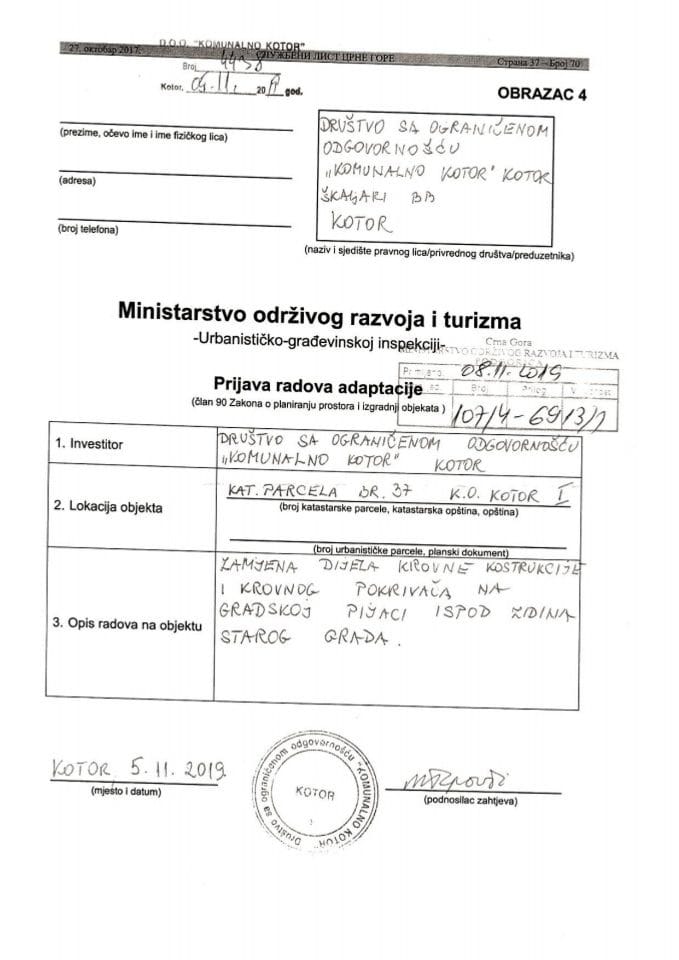 D.O.O. "KOMUNALNO KOTOR"
27. октобар 2017. СЛУЖБЕНИ ЛИСТ ЦРНЕ ГОРЕ Страна 37 – Број 70
Broj 4438
Kotor, 20 god.
OBRAZAC 4
(prezime, očevo ime i ime fizičkog lica)
(adresa)
(broj telefona)
DRUŠTVO SA OGRANIČENOM
ODGOVORNOŠĆU
"KOMUNALNO KOTOR" KOTOR
ŠKALJARI BB
KOTOR
(naziv i sjedište pravnog lica/privrednog društva/preduzetnika)
Ministarstvo održivog razvoja i turizma
-Urbanističko-građevinskoj inspekciji-
Crna Gora
MINISTARSTVO ODRŽIVOG RAZVOJA I TURIZMA
PODGORICA
Primljeno: 08.11.2019
Broj Prilog
107/4-6913/1
Prijava radova adaptacije
(član 90 Zakona o planiranju prostora i izgradnji objekata )
1. Investitor
DRUŠTVO SA OGRANIČENOM ODGOVORNOŠĆU
"KOMUNALNO KOTOR" KOTOR
2. Lokacija objekta
KAT. PARCELA BR. 37 K.O. KOTOR I
(broj katastarske parcele, katastarska opština, opština)
(broj urbanističke parcele, planski dokument)
3. Opis radova na objektu
ZAMJENA DIJELA KROVNE KOSTRUKCIJE
I KROVNOG POKRIVAČA NA
GRADSKOJ PIJACI ISPOD ZIDINA
STAROG GRADA.
KOTOR 5.11.2019.
(mjesto i datum)
Društvo sa ograničenom odgovornošću "KOMUNALNO KOTOR"
KOTOR
(podnosilac zahtjeva)